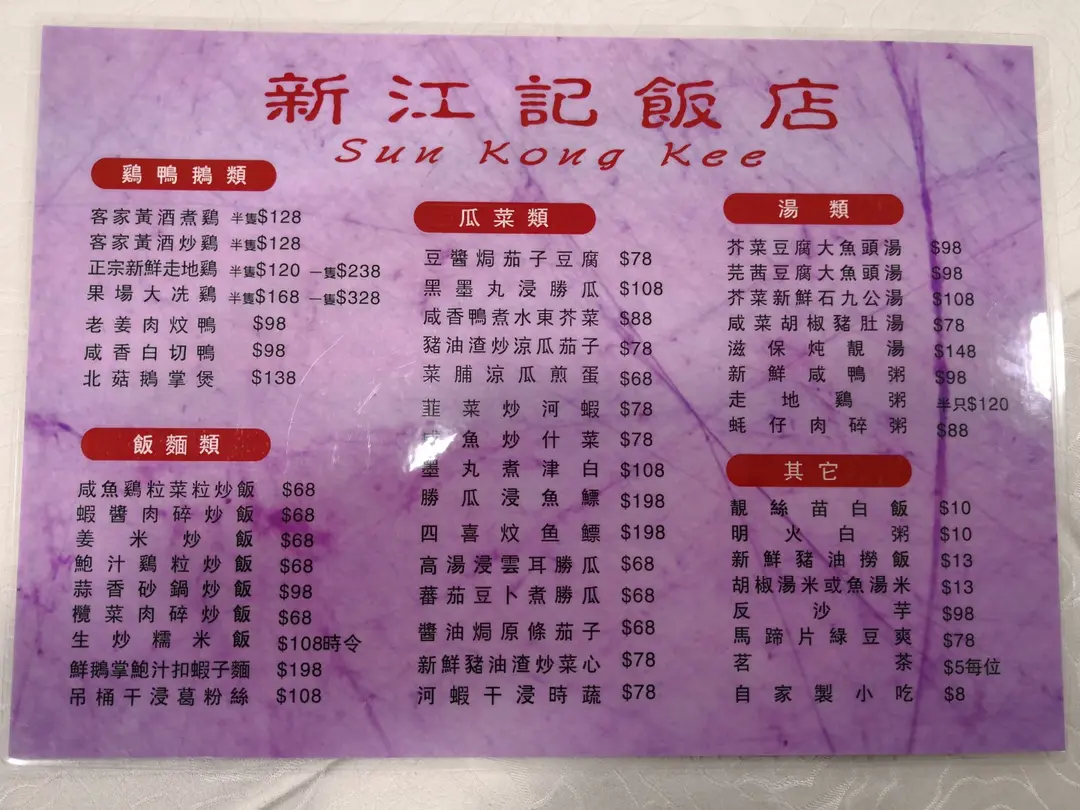 新江記飯店
Sun Kong Kee
鷄鴨鵝類
客家黃酒煮鷄 半隻$128
客家黃酒炒鷄 半隻$128
正宗新鮮走地鷄 半隻$120 一隻$238
果場大冼鷄 半隻$168 一隻$328
老姜肉炆鴨 $98
咸香白切鴨 $98
北菇鵝掌煲 $138
飯麵類
咸魚鷄粒菜粒炒飯 $68
蝦醬肉碎炒飯 $68
姜米炒飯 $68
鮑汁鷄粒炒飯 $68
蒜香砂鍋炒飯 $98
欖菜肉碎炒飯 $68
生炒糯米飯 $108時令
鮮鵝掌鮑汁扣蝦子麵 $198
吊桶干浸葛粉絲 $108
瓜菜類
豆醬焗茄子豆腐 $78
黑墨丸浸勝瓜 $108
咸香鴨煮水東芥菜 $88
豬油渣炒涼瓜茄子 $78
菜脯涼瓜煎蛋 $68
韮菜炒河蝦 $78
魚炒什菜 $78
墨丸煮津白 $108
勝瓜浸魚鰾 $198
四喜炆鱼鰾 $198
高湯浸雲耳勝瓜 $68
蕃茄豆卜煮勝瓜 $68
醬油焗原條茄子 $68
新鮮豬油渣炒菜心 $78
河蝦干浸時蔬 $78
湯類
芥菜豆腐大魚頭湯 $98
芫茜豆腐大魚頭湯 $98
芥菜新鮮石九公湯 $108
咸菜胡椒豬肚湯 $78
滋保炖靚湯 $148
新鮮咸鴨粥 $98
走地鷄粥 半只$120
蚝仔肉碎粥 $88
其它
靚絲苗白飯 $10
明火白粥 $10
新鮮豬油撈飯 $13
胡椒湯米或魚湯米 $13
反沙芋 $98
馬蹄片綠豆爽 $78
茗茶 $5每位
自家製小吃 $8